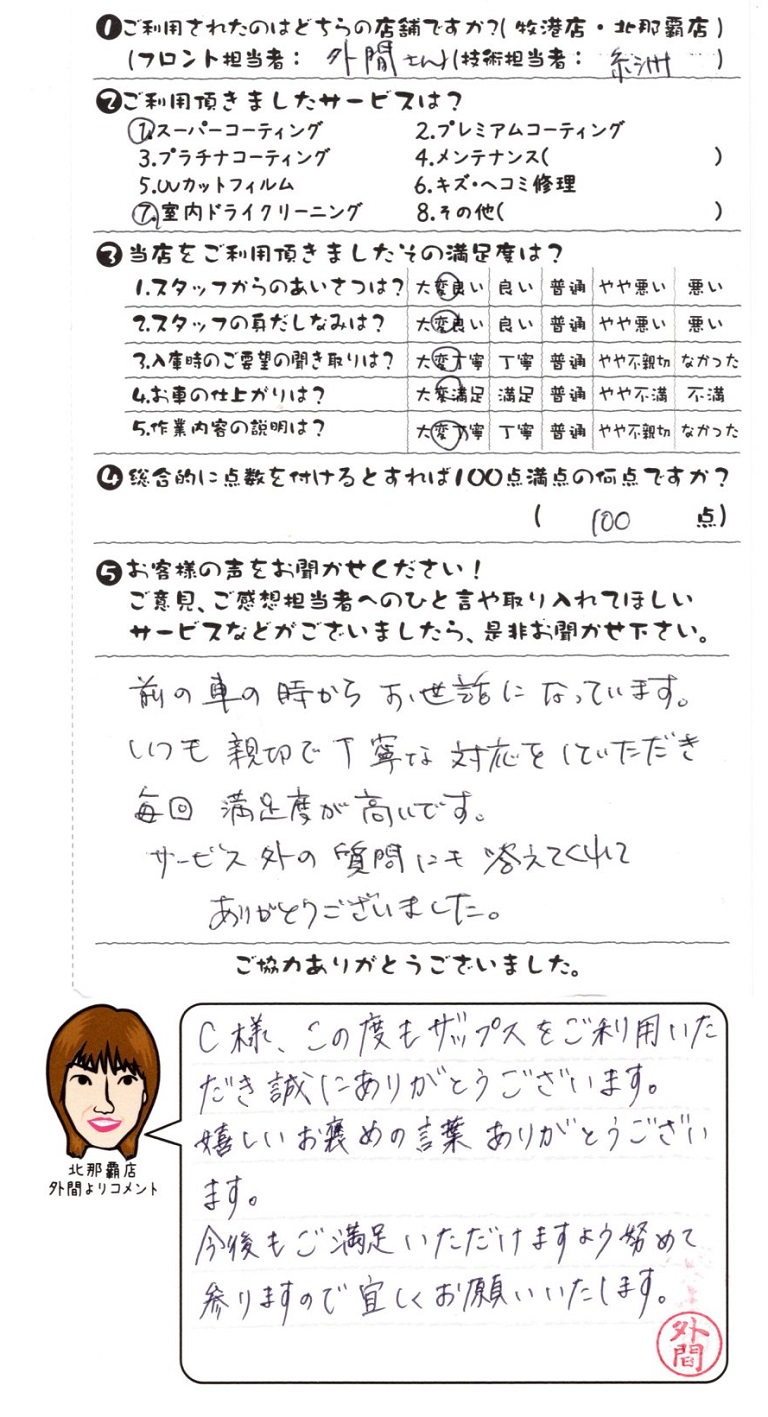 ❶ご利用されたのはどちらの店舗ですか?(牧港店・北那覇店)
(フロント担当者: 外間さん)(技術担当者: 糸洲 )
❷ご利用頂きましたサービスは?
1.スーパーコーティング 2.プレミアムコーティング
3.プラチナコーティング 4.メンテナンス( )
5.UVカットフィルム 6.キズ・ヘコミ修理
7.室内ドライクリーニング 8.その他( )
❸当店をご利用頂きましたその満足度は?
1.スタッフからのあいさつは? 大変良い 良い 普通 やや悪い 悪い
2.スタッフの身だしなみは? 大変良い 良い 普通 やや悪い 悪い
3.入庫時のご要望の聞き取りは? 大変丁寧 丁寧 普通 やや不親切 なかった
4.お車の仕上がりは? 大変満足 満足 普通 やや不満 不満
5.作業内容の説明は? 大変丁寧 丁寧 普通 やや不親切 なかった
❹総合的に点数を付けるとすれば100点満点の何点ですか?
( 100 点)
❺お客様の声をお聞かせください!
ご意見、ご感想担当者へのひと言や取り入れてほしい
サービスなどがございましたら、是非お聞かせ下さい。
前の車の時からお世話になっています。
いつも親切で丁寧な対応をしていただき
毎回満足度が高いです。
サービス外の質問にも答えてくれて
ありがとうございました。
ご協力ありがとうございました。
C様、この度もザップスをご利用いた
だき誠にありがとうございます。
嬉しいお褒めの言葉ありがとうござい
ます。
今後もご満足いただけますよう努めて
参りますので宜しくお願いいたします。
北那覇店
外間よりコメント
外間